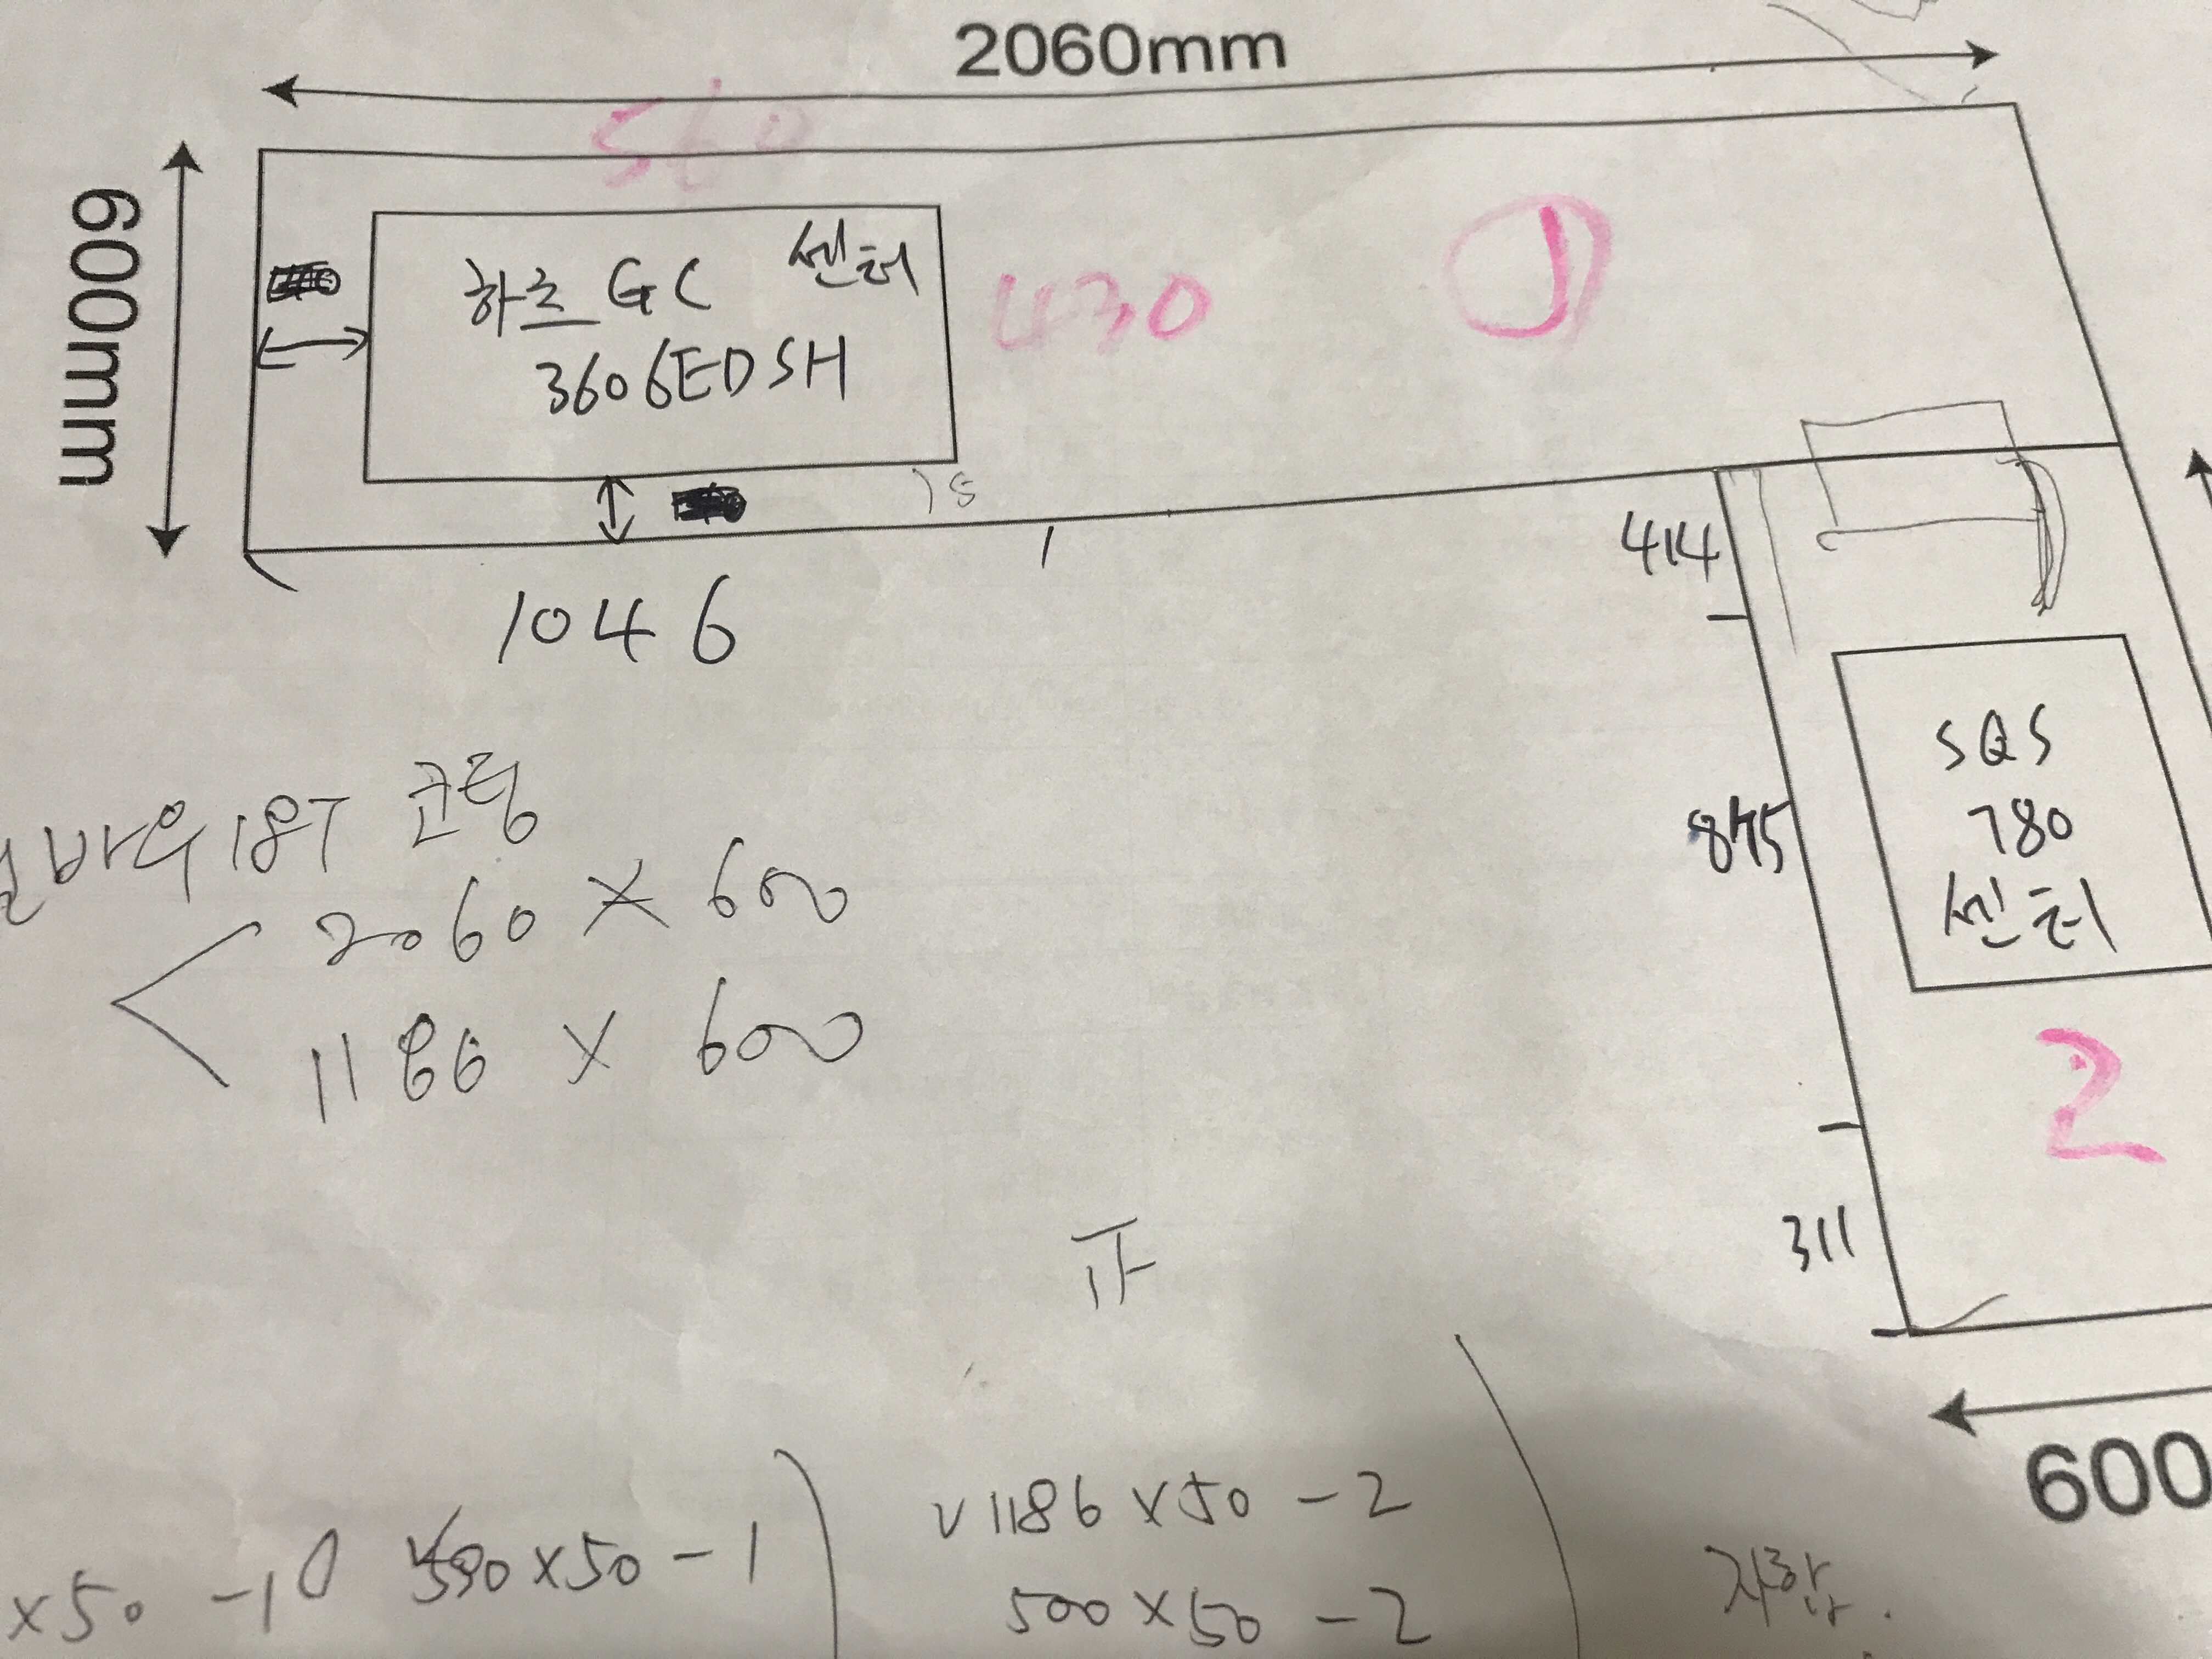 2060mm
560
600mm
하츠 GC 센터
3606EDSH
430
1
75
1046
414
875
311
SQS
780
센터
2
바우18T 코팅
2060 × 600
1186 × 600
600
x50 -1 590x50-1
v1186x50-2
500x50-2
자합.